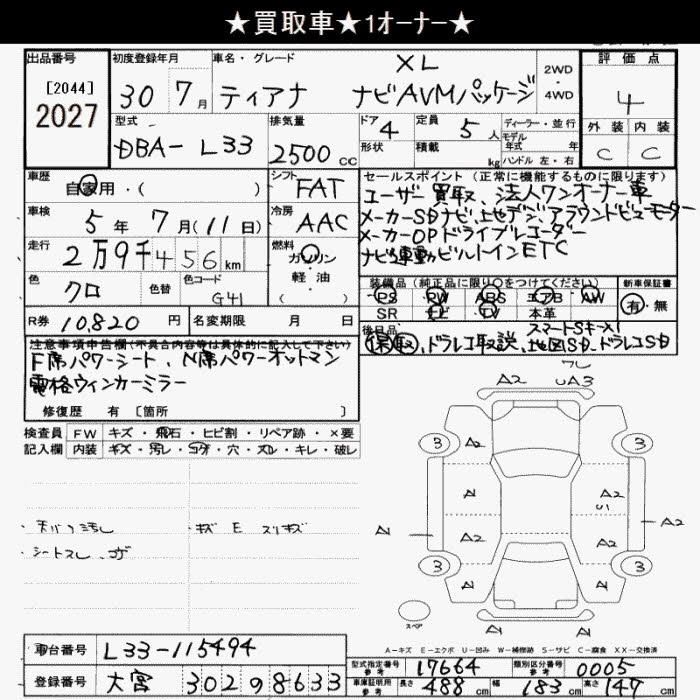 ★買取車★1オーナー★
出品番号 初度登録年月 車名・グレード 評価点
[2044]
2027
30 7月 ティアナ XL ナビAVMパッケージ
2WD・4WD
4
型式 排気量 ドア 定員 ディーラー・並行
DBA-L33 2500cc 4 5人
形状 積載 kg モデル年式 年 ハンドル 左・右
外装 内装
C C
車歴 自家用・( ) シフト FAT
車検 5年7月(11日) 冷房 AAC
走行 2万9千456km 燃料 ガソリン 軽・油 ( )
色 クロ 色替 色コード G41
R券 10,820円 名変期限 月 日
セールスポイント(正常に機能するものに限ります)
ユーザー買取、法人ワンオーナー車
メーカーSDナビ、地デジ、アラウンドビューモーター
メーカーOPドライブレコーダー
ナビ連動ビルトインETC
装備品(純正品に限り○をつけてください) 新車保証書
PS PW ABS エアB AW 有・無
SR ナビ TV 本革
後日品 スマートSキー×1
保、取、ドラレコ取説、地図SD、ドラレコSD
注意事項申告欄(不具合内容等は具体的に記入して下さい)
F席パワーシート、N席パワーオットマン
電格ウィンカーミラー
修復歴 有 [箇所 ]
検査員 FW キズ・飛石・ヒビ割・リペア跡・×要
記入欄 内装 キズ・汚レ・コゲ・穴・スレ・キレ・破レ
シートスレ
A2 A3
3 A2 3
A A2
A A2 A2
A2
3 A A 3
A A
スペア
A-キズ E-エクボ U-凹み W-補修跡 S-サビ C-腐食 XX-交換済
車台番号 L33-115494
登録番号 大宮 302 98633
型式指定番号 参考 17664 類別区分番号 参考 0005
車庫証明用 参考 長さ 488cm 幅 183cm 高さ 147cm